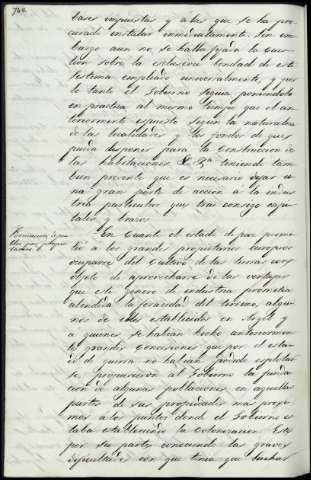 744
bares impuestas y a los que se ha pro
curado instalar inmediatamente. Sin em
bargo aun no se halla fijada la cues
tion sobre la exclusiva bondad de este
sistema empleado universalmente, y por
lo tanto el Gobierno seguia poniendolo
en practica al mismo tiempo que el an
teriormente espuesto segun la naturaleza
de las localidades y los fondos de que
pueda disponer para la construccion de
las habitaciones teniendo tam
bien presente que es necesario dejar u
na gran parte de accion a la indus
tria particular que trae consigo capi
tales y brazos.
En cuanto el estado de paz permi
tió a los grandes propietarios europeos
ocuparse del cultivo de las tierras con
objeto de aprovecharse de las ventajas
que este genero de industria prometia
atendida la feracidad del terreno, algu
nos de ellos establecidos en Argel y
a quienes se habian hecho anteriormen
te grandes concesiones que por el esta
do de guerra no habian podido esplotar
se, propusieron al Gobierno la funda
cion de algunas poblaciones en aquellas
partes de sus propiedades mas proxi
mas a los puntos donde el Gobierno es
taba estableciendo la colonizacion. Este
por su parte conociendo las graves
dificultades con que tenia que luchar